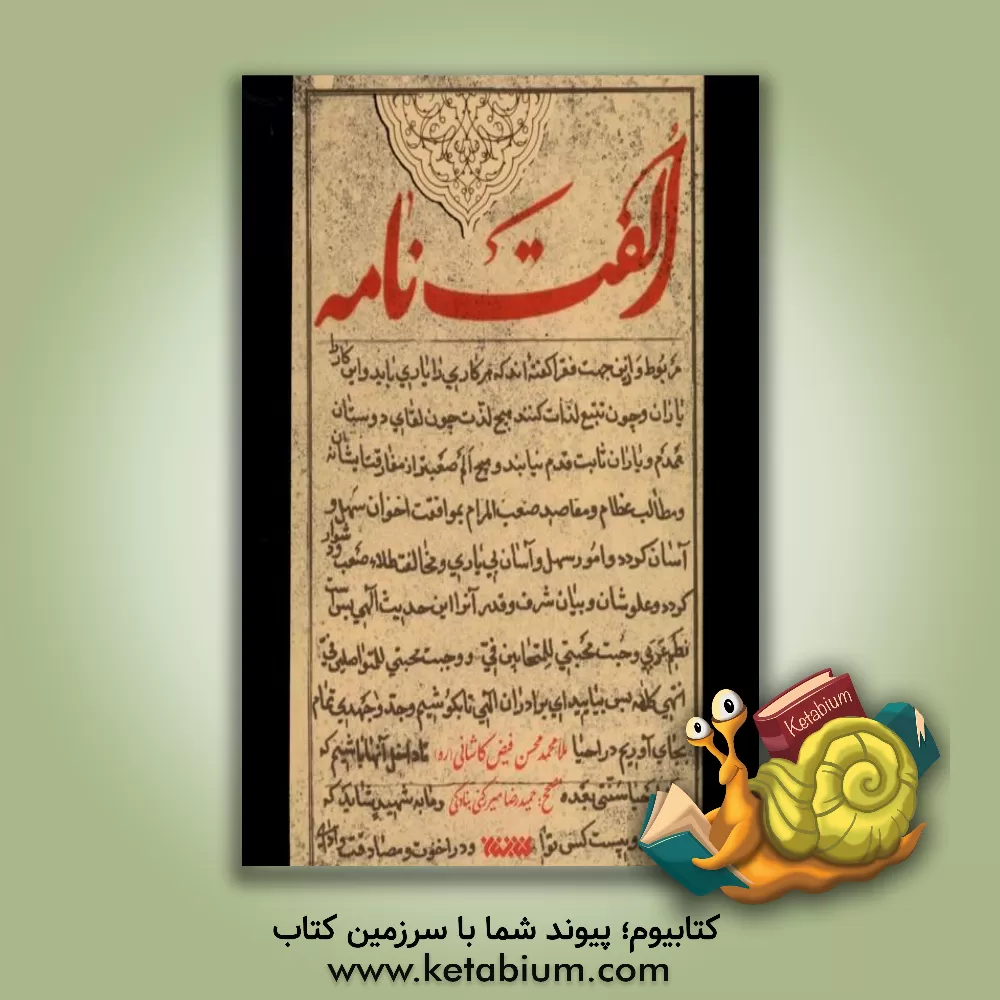 الفت نامه
مربوط و ازین جهت فقرا گفته‌اند که هر کاری را یاری باید و این کار را
یاران و چون تتبع لذات کنند هیچ لذت چون لقای دوستان
همدم و یاران ثابت قدم نیابند و هیچ الم صعبتر از مفارقت ایشان نه
و مطالب عظام و مقاصد صعب المرام بموافقت اخوان سهل و
آسان کردد و امور سهل و آسان بی یاری و مخالفت صعب و دشوار
کردد و علو شان و بیان شرف و قدر آنرا این حدیث الهی بس است
وجبت محبتی للمتحابین فی و وجبت محبتی للمتواصلین فی
انتهی کلامه پس بیایید ای برادران الهی تا بکوشیم و جد و جهدی تمام
بجای آوریم در احیا
ملا محمد محسن فیض کاشانی (ره)
تا داخل آنها باشیم که
مصحح: حمیدرضا میررکنی بنادکی
و در اخوت و مصادقت
Ketabium
کتابیوم؛ پیوند شما با سرزمین کتاب
www.ketabium.com